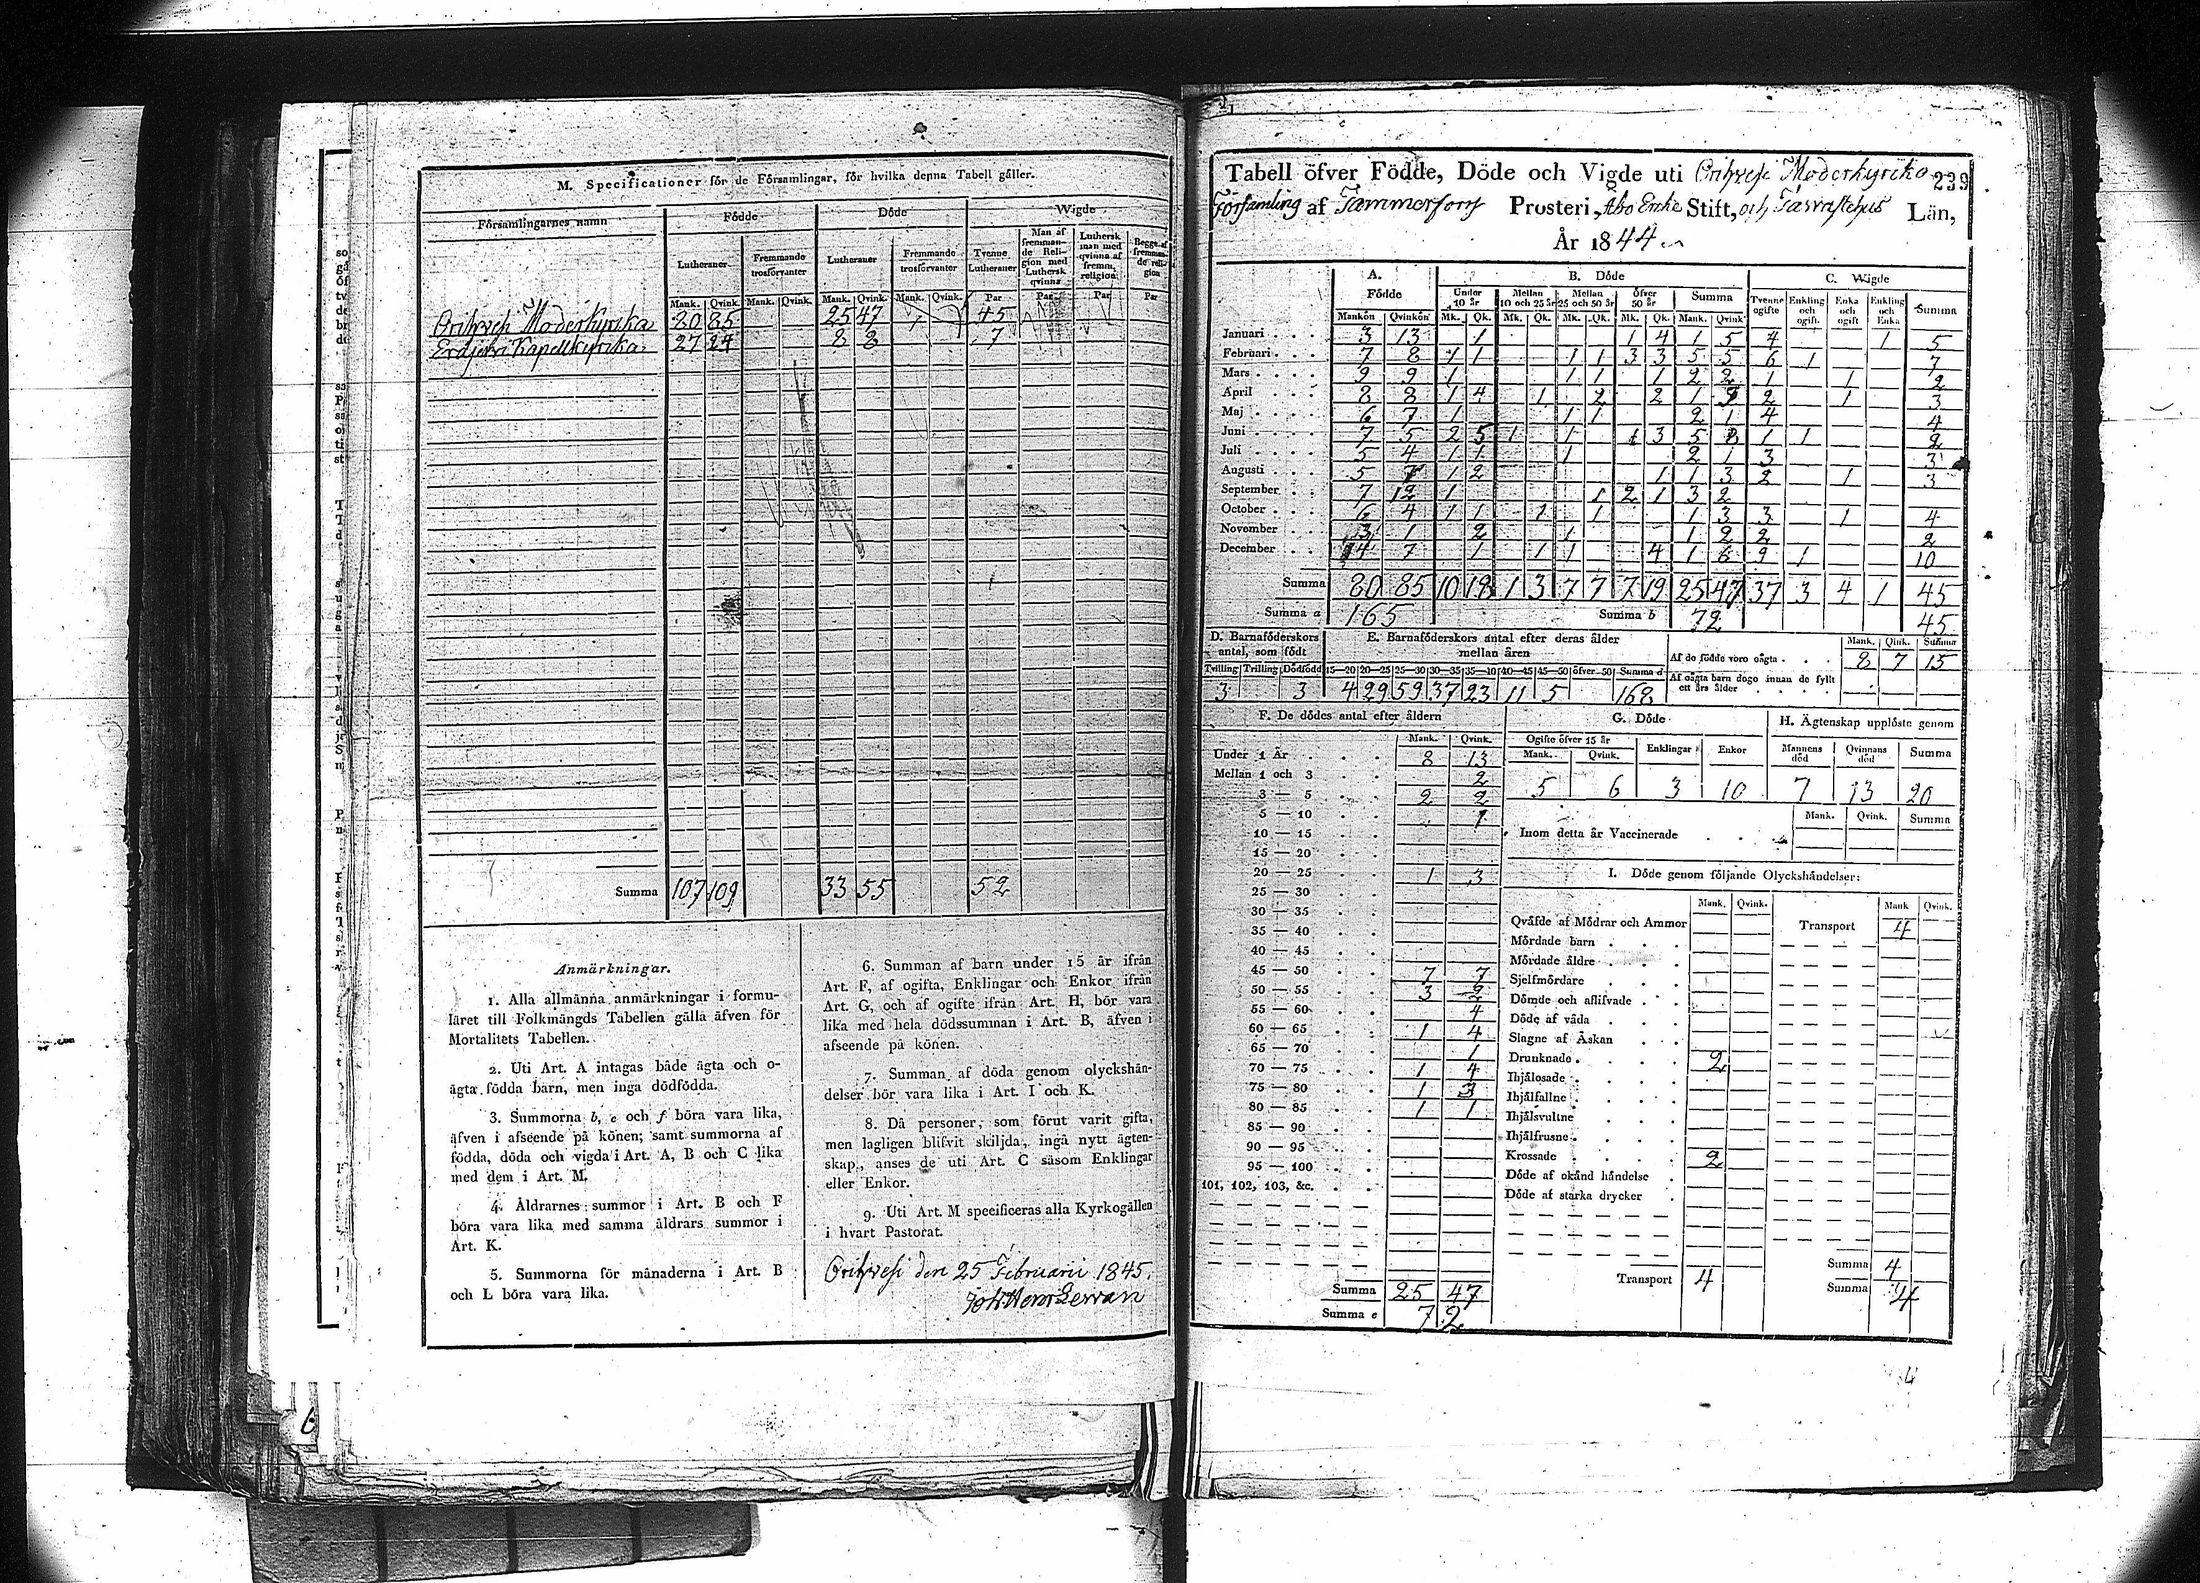 M. Specificationer för de Församlingar, för hvilka denna Tabell gäller.
Församlingarnes namn | Födde | Döde | Wigde
Lutheraner | Fremmande trosförvanter | Lutheraner | Fremmande trosförvanter | Tvenne Lutheraner | Man af fremmande Religion med Luthersk qvinna | Luthersk man med qvinna af fremm. religion | Begge af fremmande religion
Mank. | Qvink. | Mank. | Qvink. | Mank. | Qvink. | Mank. | Qvink. | Par | Par | Par | Par
Orihvesi Moderkyrika 80 85 25 47 45
Eräjervi Kapellkyrika 27 24 8 8 7
Summa 107 109 33 55 52
Anmärkningar.
1. Alla allmänna anmärkningar i formu-
läret till Folkmängds Tabellen gälla äfven för
Mortalitets Tabellen.
2. Uti Art. A intagas både ägta och o-
ägta födda barn, men inga dödfödda.
3. Summorna b, e och f böra vara lika,
äfven i afseende på könen; samt summorna af
födda, döda och vigda i Art. A, B och C lika
med dem i Art. M.
4. Åldrarnes summor i Art. B och F
böra vara lika med samma åldrars summor i
Art. K.
5. Summorna för månaderna i Art. B
och L böra vara lika.
6. Summan af barn under 15 år ifrån
Art. F, af ogifta, Enklingar och Enkor ifrån
Art. G, och af ogifte ifrån Art. H, bör vara
lika med hela dödssumman i Art. B, äfven i
afseende på könen.
7. Summan af döda genom olyckshän-
delser bör vara lika i Art. I och K.
8. Då personer, som förut varit gifta,
men lagligen blifvit skiljda, ingå nytt ägten-
skap, anses de uti Art. C såsom Enklingar
eller Enkor.
9. Uti Art. M specificeras alla Kyrkogällen
i hvart Pastorat.
Orihvesi den 25 Februarii 1845.
239
Tabell öfver Födde, Döde och Vigde uti Orihvesi Moderkyrika
Församling af Tammerfors Prosteri, Åbo Erke Stift, och Tavastehus Län,
År 1844
A. Födde | B. Döde | C. Wigde
Under 10 år | Mellan 10 och 25 år | Mellan 25 och 50 år | Öfver 50 år | Summa | Tvenne ogifte | Enkling och ogift. | Enka och ogift | Enkling och Enka | Summa
Mankön | Qvinkön | Mk. | Qk. | Mk. | Qk. | Mk. | Qk. | Mk. | Qk. | Mank. | Qvink
Januari 3 13 1 1 4 1 5 4 1 5
Februari 7 8 1 1 1 1 3 3 5 5 6 1 7
Mars 9 9 1 1 1 1 2 2 1 1 2
April 8 8 1 4 1 2 2 1 9 2 1 3
Maj 6 7 1 1 1 2 1 4 4
Juni 7 5 2 5 1 1 1 3 5 8 1 1 2
Juli 5 4 1 1 1 2 1 3 3
Augusti 5 7 1 2 1 1 3 2 1 3
September 7 12 1 1 2 1 3 2
October 6 4 1 1 1 1 1 3 3 1 4
November 3 1 2 1 1 2 2 2
December 14 7 1 1 1 4 1 6 9 1 10
Summa 80 85 10 18 1 3 7 7 7 19 25 47 37 3 4 1 45
Summa a 165 Summa b 72 45
D. Barnaföderskors antal, som födt
Tvilling | Trilling | Dödfödd
3 3
E. Barnaföderskors antal efter deras ålder mellan åren
15—20 | 20—25 | 25—30 | 30—35 | 35—40 | 40—45 | 45—50 | öfver 50 | Summa d
4 29 59 37 23 11 5 168
Mank. | Qink. | Summa
Af de födde voro oägta 8 7 15
Af oägta barn dogo innan de fyllt
ett års ålder
F. De dödes antal efter åldern
Mank. | Qvink.
Under 1 År 8 13
Mellan 1 och 3 2
3 — 5 2 2
5 — 10 1
10 — 15
15 — 20
20 — 25 1 3
25 — 30
30 — 35
35 — 40
40 — 45
45 — 50 7 7
50 — 55 3 2
55 — 60 4
60 — 65 1 4
65 — 70 1
70 — 75 1 4
75 — 80 1 3
80 — 85 1 1
85 — 90
90 — 95
95 — 100
101, 102, 103, &c.
Summa 25 47
Summa e 72
G. Döde
Ogifte öfver 15 år | Enklingar | Enkor
Mank. | Qvink.
5 6 3 10
H. Ägtenskap upplöste genom
Mannens död | Qvinnans död | Summa
7 13 20
Mank. | Qvink. | Summa
Inom detta år Vaccinerade
I. Döde genom följande Olyckshändelser:
Mank. | Qvink. | Mank | Qvink.
Qväfde af Mödrar och Ammor | Transport 4
Mördade barn
Mördade äldre
Sjelfmördare
Dömde och aflifvade
Döde af våda
Slagne af Åskan
Drunknade 2
Ihjälosade
Ihjälfallne
Ihjälsvultne
Ihjälfrusne
Krossade 2
Döde af okänd händelse
Döde af starka drycker
Summa 4
Transport 4 Summa 4